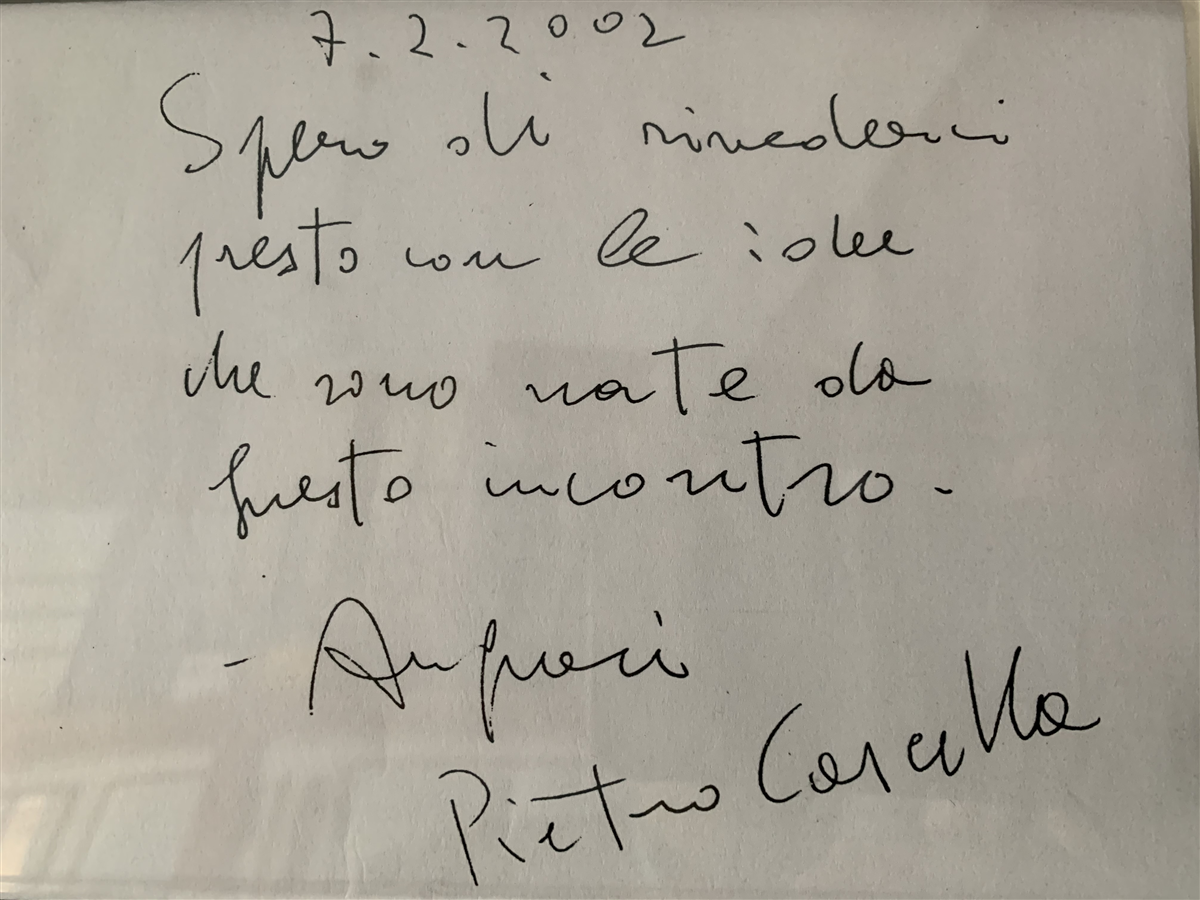 7.2.2002
Spero di rivederci
presto con le idee
che sono nate da
questo incontro.
- Auguri
Pietro Cascella